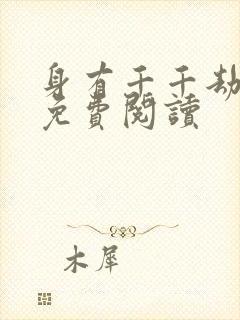 身有千千劫
免費閱讀
木犀